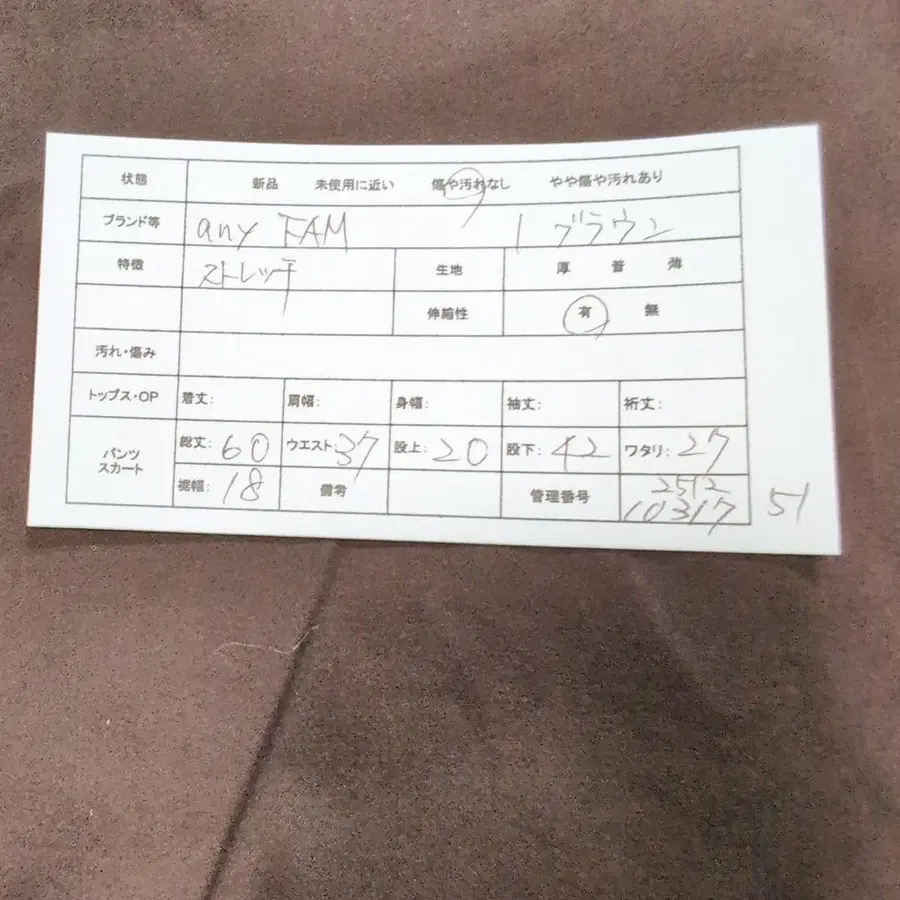 状態 新品 未使用に近い 傷や汚れなし やや傷や汚れあり
ブランド等 any FAM 1 ブラウン
特徴 ストレッチ 生地 厚 普 薄
伸縮性 有 無
汚れ・傷み
トップス・OP 着丈: 肩幅: 身幅: 袖丈: 裄丈:
パンツ スカート 総丈: 60 ウエスト: 37 股上: 20 股下: 42 ワタリ: 27
裾幅: 18 備考 管理番号 2512 10317 51